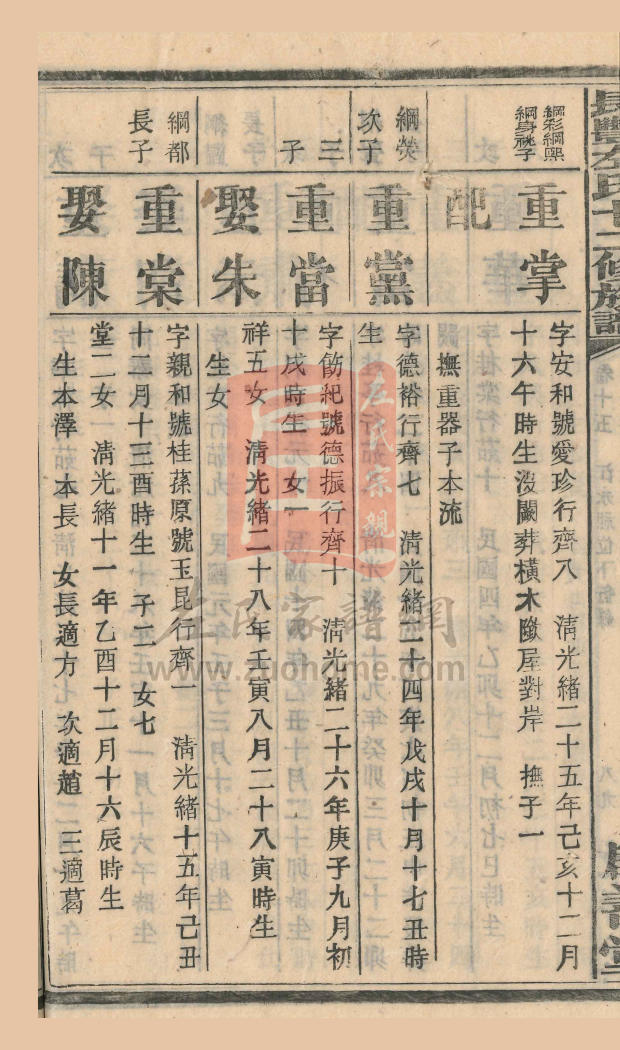 長豐左氏十二修族譜
卷十五
綱彩綱熙
綱身祧子
重掌
字安和號愛珍行齊八 清光緒二十五年己亥十二月
十六午時生沒闕葬橫木隥屋對岸 撫子一
配
撫重器子本流
綱熒
次子
重黨
字德裕行齊七 清光緒二十四年戊戌十月十七丑時
生
三
子
重當
字節紀號德振行齊十 清光緒二十六年庚子九月初
十戌時生 女一
娶朱
祥五女 清光緒二十八年壬寅八月二十八寅時生
生女
綱都
長子
重棠
字親和號桂蓀原號玉昆行齊一 清光緒十五年己丑
十二月十三酉時生 子二 女七
娶陳
堂二女 清光緒十一年乙酉十二月十六辰時生
生本澤 本長 女長適方 次適趙 三適葛
左氏宗親
左氏家譜網
www.zuohome.com